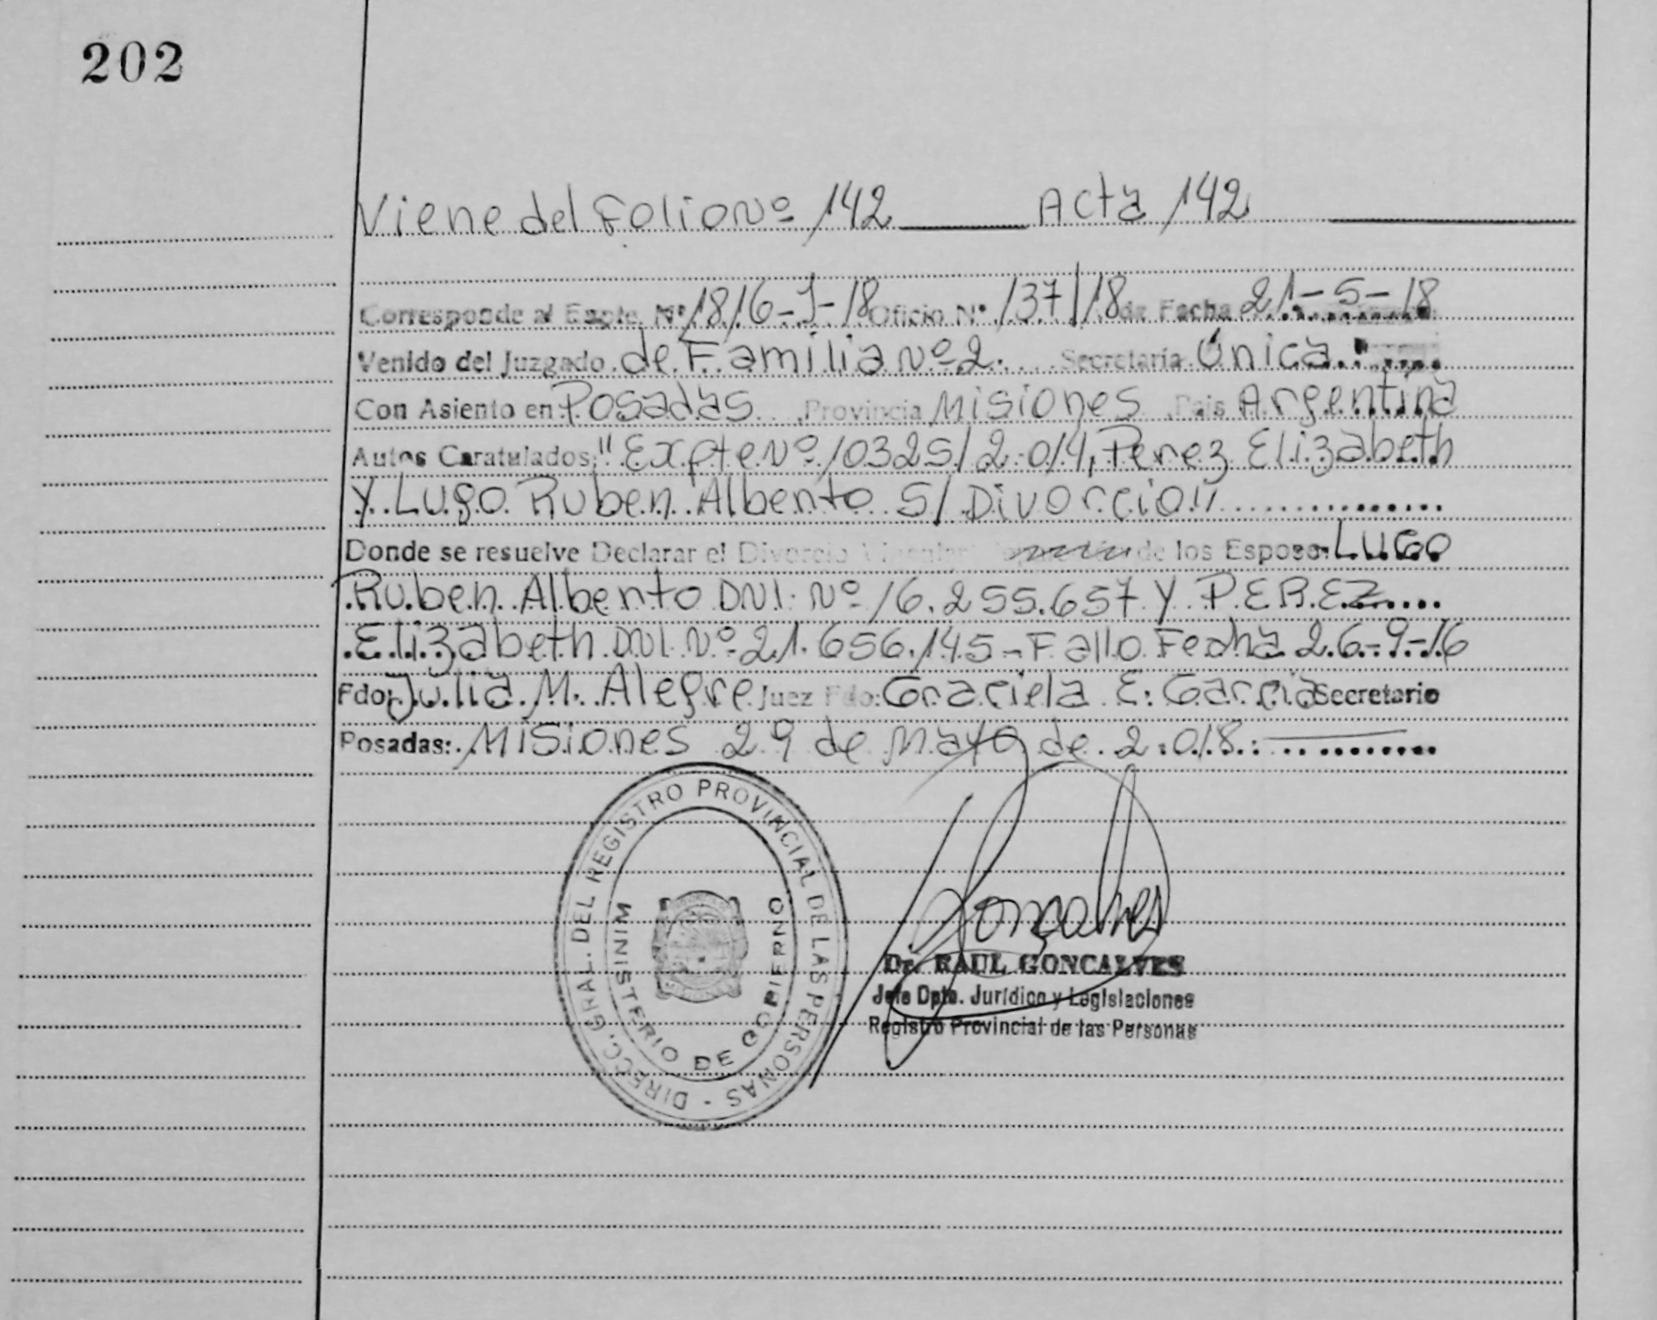 202
Viene del Folio Nº 142 Acta 142
Corresponde al Expte. Nº 1816-J-18 Oficio Nº 137/18 de Fecha 21-5-18
Venido del Juzgado de Familia Nº 2. Secretaría Única.
Con Asiento en Posadas Provincia Misiones Pais Argentina
Autos Caratulados: "Expte Nº 10325/2.014, Perez Elizabeth
Y Lugo Ruben Alberto S/ Divorcio"
Donde se resuelve Declarar el Divorcio Vincular de los Esposos: LUGO
Ruben Alberto DNI Nº 16.255.657 Y PEREZ
Elizabeth DNI Nº 21.656.145 - Fallo Fecha 26-9-16
Fdo: Julia M. Alegre Juez Fdo: Graciela E. Garcia Secretario
Posadas: Misiones 29 de Mayo de 2.018.
DIRECC. GRAL. DEL REGISTRO PROVINCIAL DE LAS PERSONAS -
MINISTERIO DE GOBIERNO
Goncalves
Dr. RAUL GONCALVES
Jefe Dpto. Jurídico y Legislaciones
Registro Provincial de las Personas